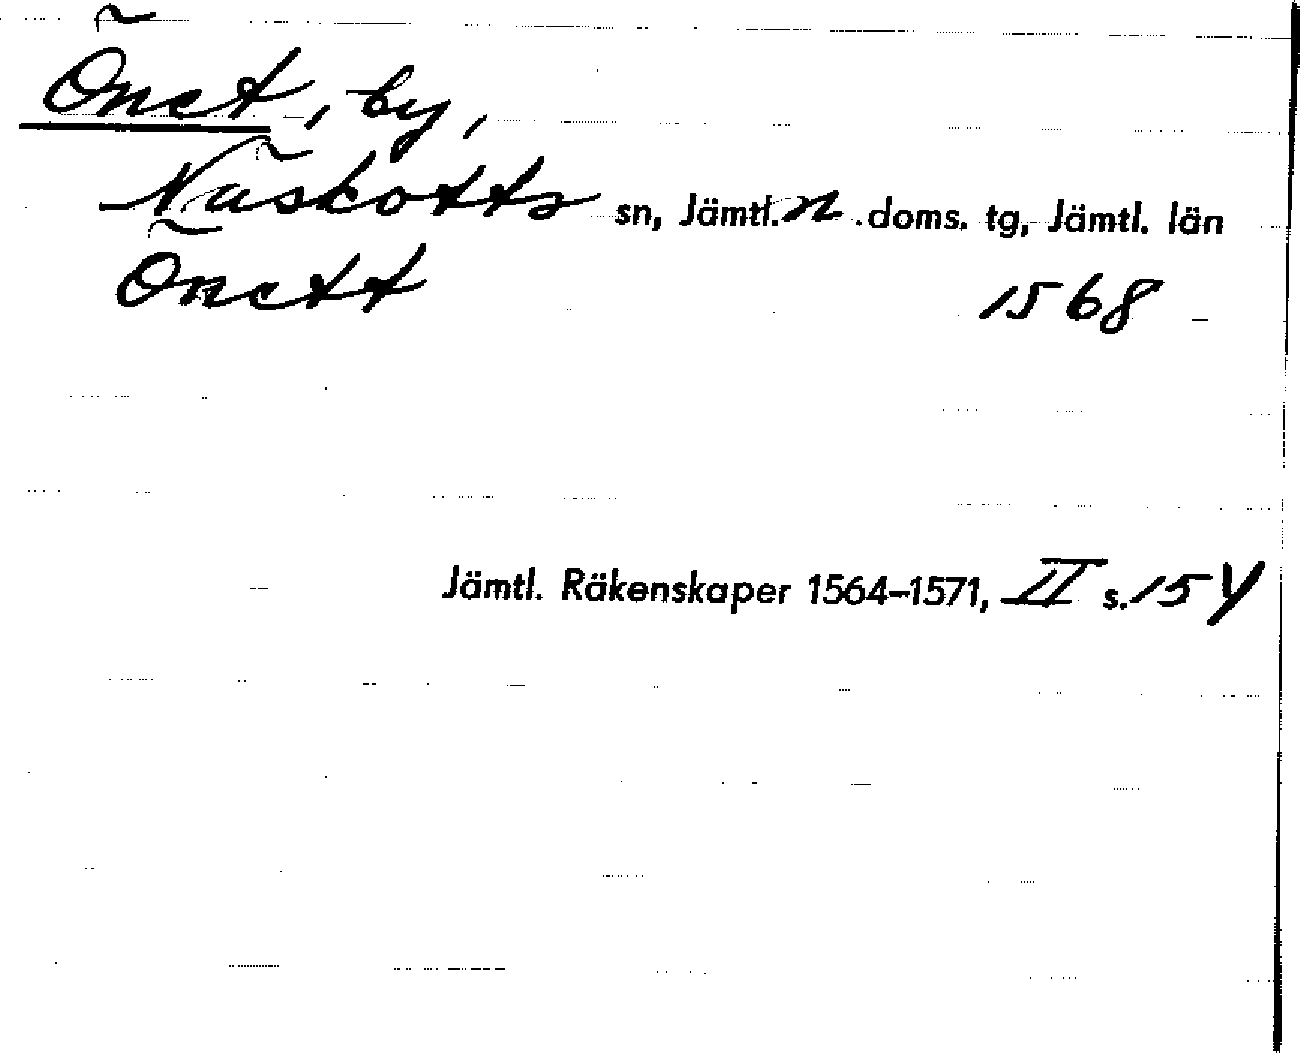 Önet, by,
Näskotts sn, Jämtl. n. doms. tg, Jämtl. län
Önett 1568
Jämtl. Räkenskaper 1564–1571, II s. 154